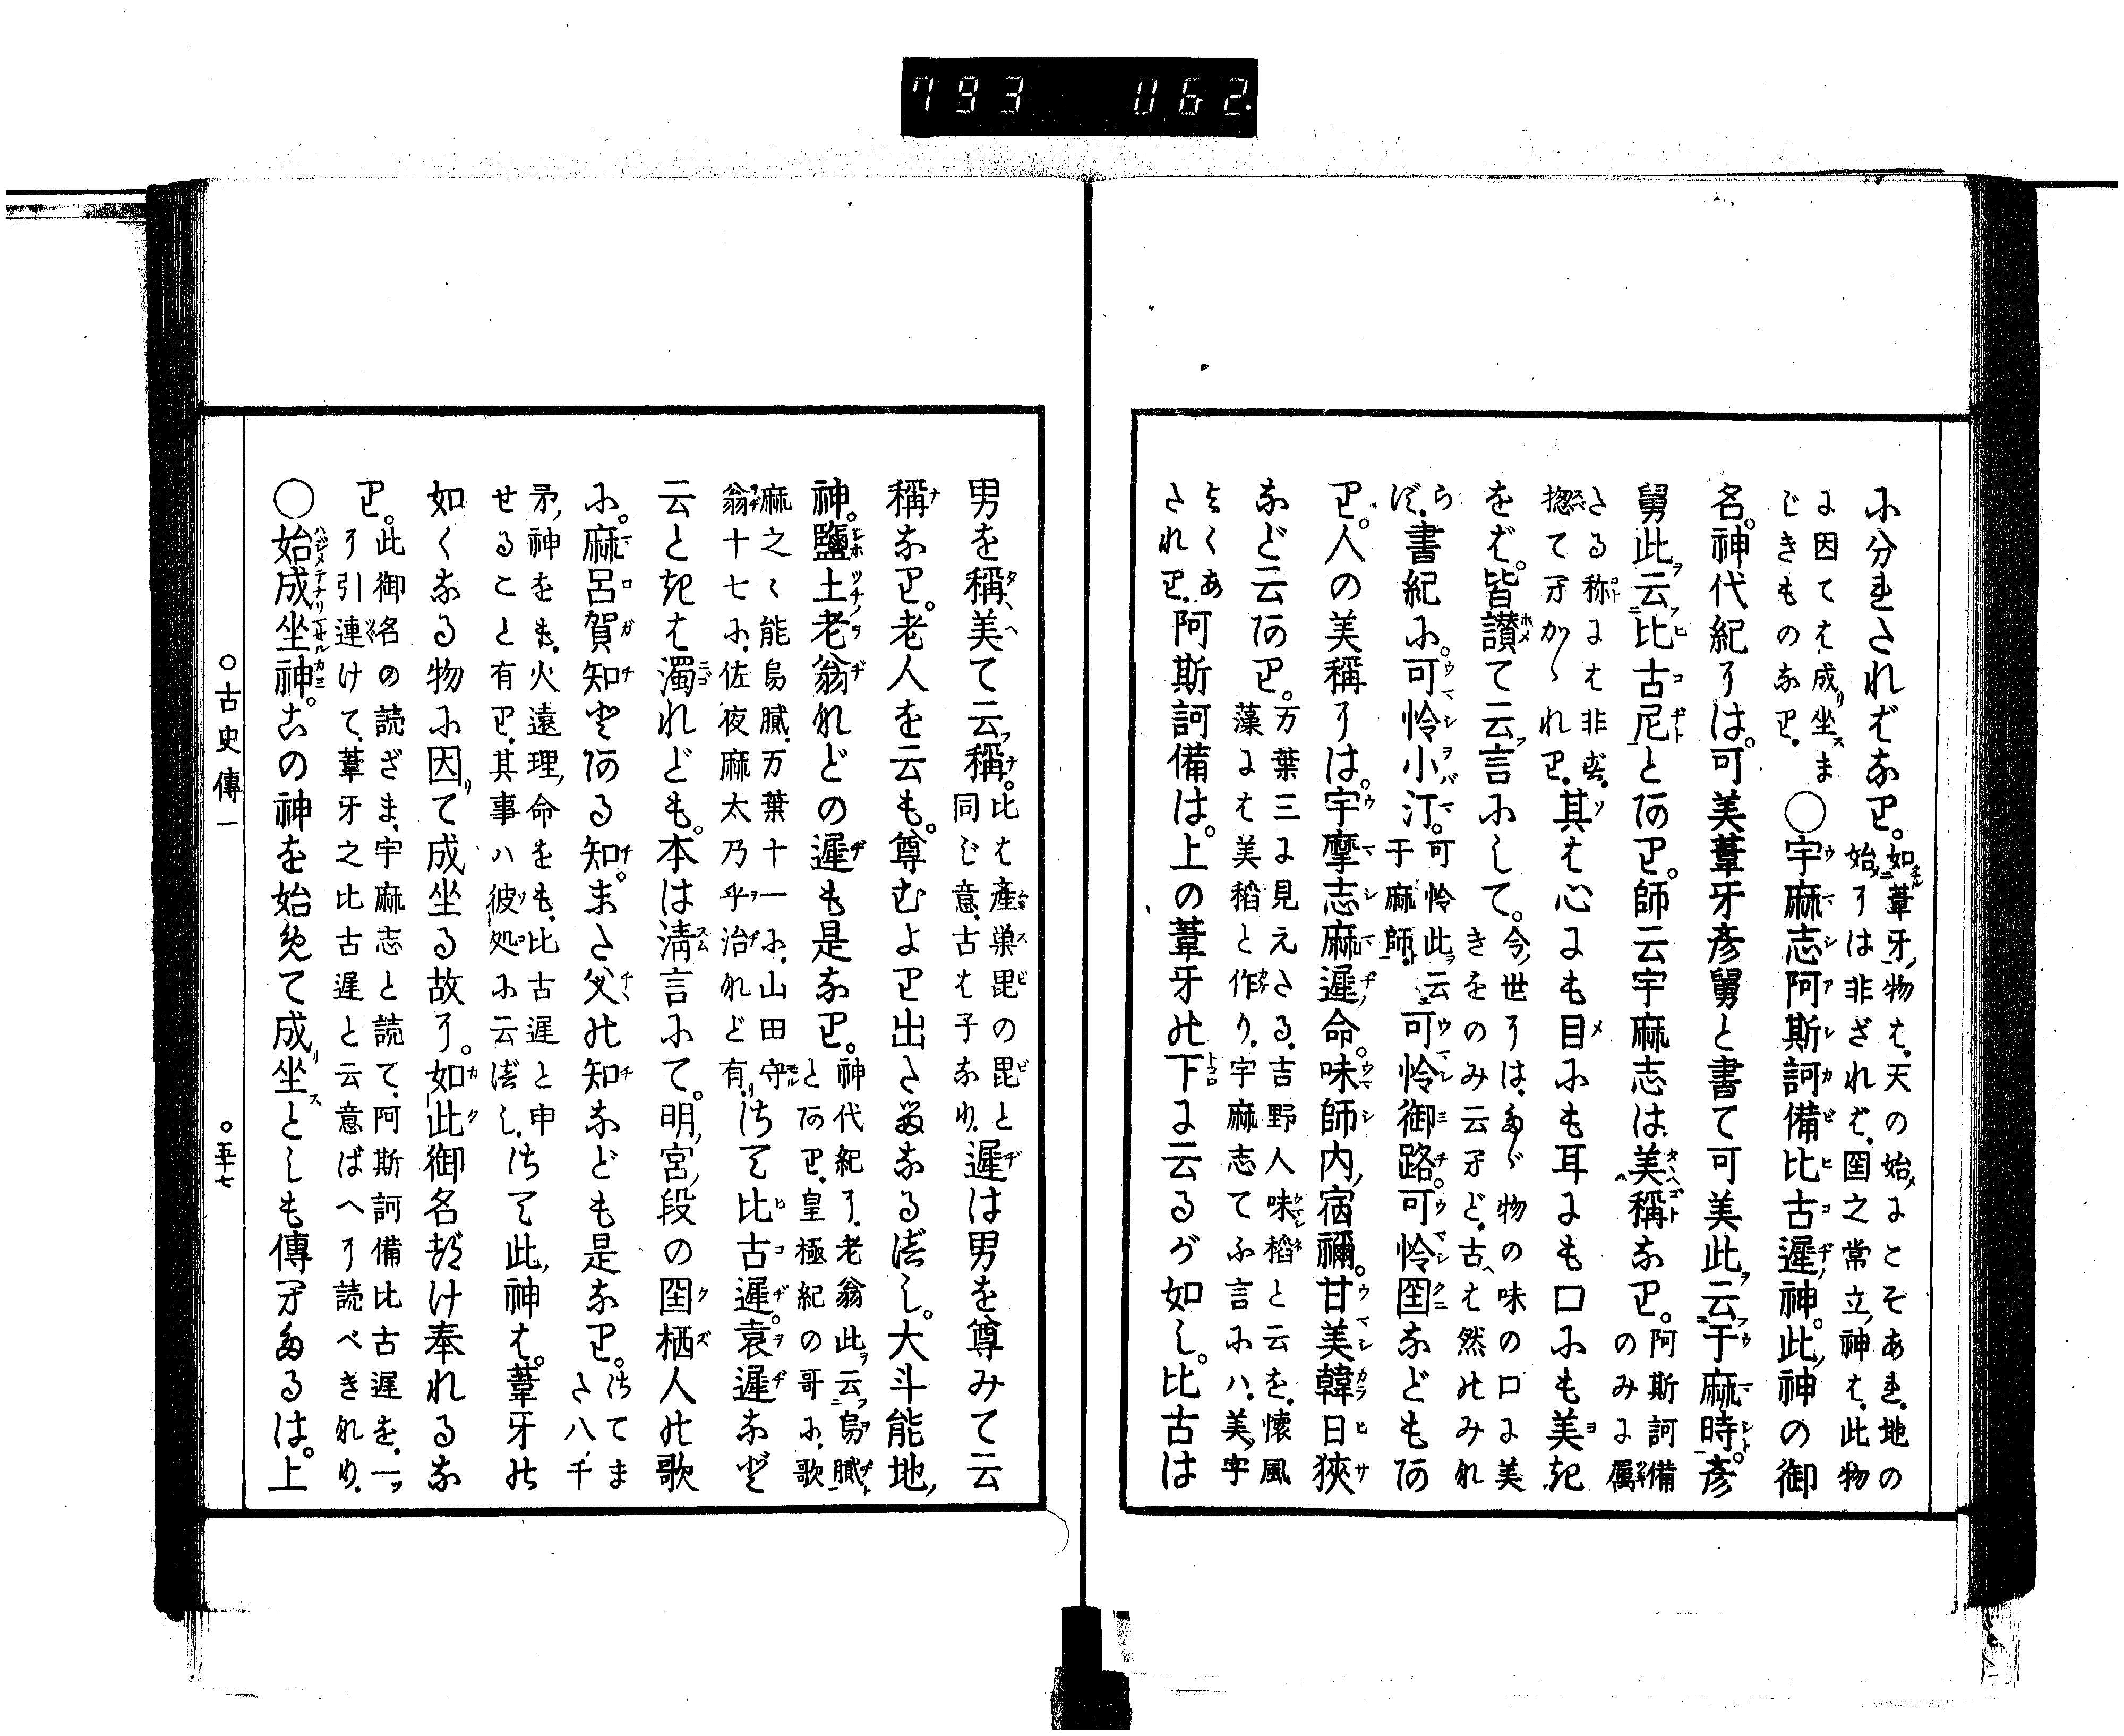 793 062
に分れたればなり。如葦牙物は、天の始にこそあれ、地の始には非ざれば、国之常立神は、此物
に因ては成坐まじきものなり。〇宇麻志阿斯訶備比古遅神。此神の御
名。神代紀には。可美葦牙彦舅と書て可美此云于麻時。彦
舅此云比古尼とあり。師云宇麻志は、美稱なり。阿斯訶備のみに属
たる称には非ず。惣てにかゝれり。其は心にも目にも耳にも口にも美き
をば。皆讃て云言にして。今世には、たゞ物の味の口に美きをのみ云めど、古は然のみな
らず。書紀に。可怜小汀。可怜此云于麻師。可怜御路。可怜国などもあ
り。人の美稱には。宇摩志麻遅命。味師内宿禰。甘美韓日狭
など云あり。万葉三に見えたる、吉野人味稻と云を、懐風藻には美稻と作り、宇麻志てふ言にハ、美字
よくあたれり。阿斯訶備は。上の葦牙の下に云るが如し。比古は
男を稱美て云稱。比は產巣毘の毘と同じ意、古は子なり。遅は男を尊みて云
稱なり。老人を云も。尊むより出たるなるべし。大斗能地
神。鹽土老翁などの遅も是なり。神代紀に、老翁此云烏膩とあり。皇極紀の哥に、歌
麻之々能烏膩、万葉十一に、山田守翁十七に、佐夜麻太乃乎治など有り。さて比古遅。袁遅など
云ときは濁れども。本は清言にて。明宮段の国栖人の歌
に。麻呂賀知とある知。また父の知なども是なり。さてまた八千
矛神をも、火遠理命をも、比古遅と申せること有り。其事ハ彼処に云べし。さて此神は。葦牙の
如くなる物に因て成坐る故に。如此御名づけ奉れるな
り。此御名の読ざま、宇麻志と読て、阿斯訶備比古遅を、一ツに引連けて、葦牙之比古遅と云意ばへに読べきなり。
〇始成坐神。この神を始めて成坐としも傳へたるは。上
〇古史傳一 〇五十七